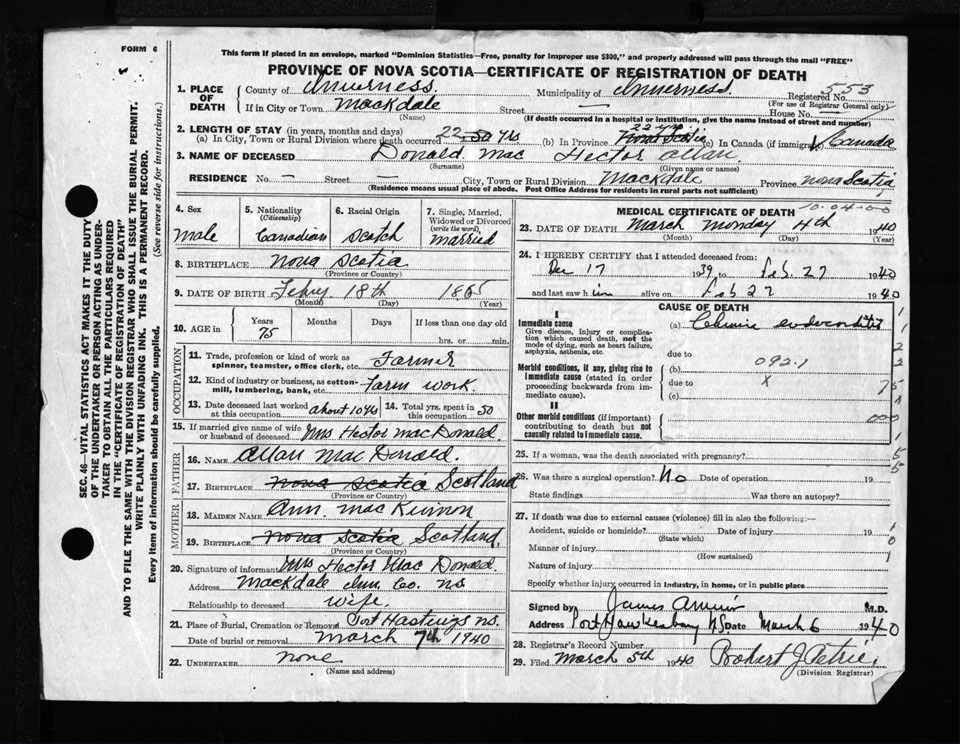 FORM 6
This form if placed in an envelope, marked "Dominion Statistics—Free, penalty for improper use $300," and properly addressed will pass through the mail "FREE"
PROVINCE OF NOVA SCOTIA—CERTIFICATE OF REGISTRATION OF DEATH
SEC. 46—VITAL STATISTICS ACT MAKES IT THE DUTY
OF THE UNDERTAKER OR PERSON ACTING AS UNDER-
TAKER TO OBTAIN ALL THE PARTICULARS REQUIRED
IN THE "CERTIFICATE OF REGISTRATION OF DEATH"
AND TO FILE THE SAME WITH THE DIVISION REGISTRAR WHO SHALL ISSUE THE BURIAL PERMIT.
WRITE PLAINLY WITH UNFADING INK. THIS IS A PERMANENT RECORD.
Every item of information should be carefully supplied. (See reverse side for instructions.)
1. PLACE OF DEATH County of Inverness Municipality of Inverness Registered No. 553
(For use of Registrar General only)
If in City or Town Mackdale Street — House No.
(Name) (If death occurred in a hospital or institution, give the name instead of street and number)
2. LENGTH OF STAY (in years, months and days)
(a) In City, Town or Rural Division where death occurred 22 50 yrs (b) In Province Nova Scotia (c) In Canada (if immigrant) Canada
3. NAME OF DECEASED Donald Mac Hector Allan
(Surname) (Given name or names)
RESIDENCE No. — Street — City, Town or Rural Division Mackdale Province Nova Scotia
(Residence means usual place of abode. Post Office Address for residents in rural parts not sufficient)
4. Sex 5. Nationality (Citizenship) 6. Racial Origin 7. Single, Married, Widowed or Divorced (write the word)
male Canadian Scotch married
8. BIRTHPLACE Nova Scotia
(Province or Country)
9. DATE OF BIRTH Feby 18th 1865
(Month) (Day) (Year)
10. AGE in Years Months Days If less than one day old
75 hrs. or min.
OCCUPATION
11. Trade, profession or kind of work as spinner, teamster, office clerk, etc. Farmer
12. Kind of industry or business, as cotton-mill, lumbering, bank, etc. Farm work.
13. Date deceased last worked at this occupation about 10 yrs 14. Total yrs. spent in this occupation 50
15. If married give name of wife or husband of deceased Mrs Hector MacDonald.
FATHER
16. NAME Allan Mac Donald.
17. BIRTHPLACE Nova Scotia Scotland
(Province or Country)
MOTHER
18. MAIDEN NAME Ann. MacKinnon
19. BIRTHPLACE Nova Scotia Scotland
(Province or Country)
20. Signature of informant Mrs Hector Mac Donald.
Address Mackdale Inv Co. NS
Relationship to deceased wife.
21. Place of Burial, Cremation or Removal Port Hastings ns.
Date of burial or removal March 7th 1940
22. UNDERTAKER none
(Name and address)
MEDICAL CERTIFICATE OF DEATH
23. DATE OF DEATH March Monday 4th 1940
(Month) (Day) (Year)
24. I HEREBY CERTIFY that I attended deceased from:
Dec 17 1939, to Feb. 27 1940
and last saw him alive on Feb 27 1940
CAUSE OF DEATH
I
Immediate cause
Give disease, injury or complication which caused death, not the mode of dying, such as heart failure, asphyxia, asthenia, etc.
(a) Chronic endocarditis
due to
Morbid conditions, if any, giving rise to immediate cause (stated in order proceeding backwards from immediate cause).
(b) 092.1
due to X
(c)
II
Other morbid conditions (if important) contributing to death but not causally related to immediate cause.
000
25. If a woman, was the death associated with pregnancy?
26. Was there a surgical operation? No Date of operation 19
State findings Was there an autopsy?
27. If death was due to external causes (violence) fill in also the following:—
Accident, suicide or homicide? Date of injury 19
(State which)
Manner of injury
(How sustained)
Nature of injury
Specify whether injury occurred in industry, in home, or in public place
Signed by James M.D.
Address Port Hawkesbury NS Date March 6 1940
28. Registrar's Record Number
29. Filed March 5th 1940 Robert J Petrie.
(Division Registrar)